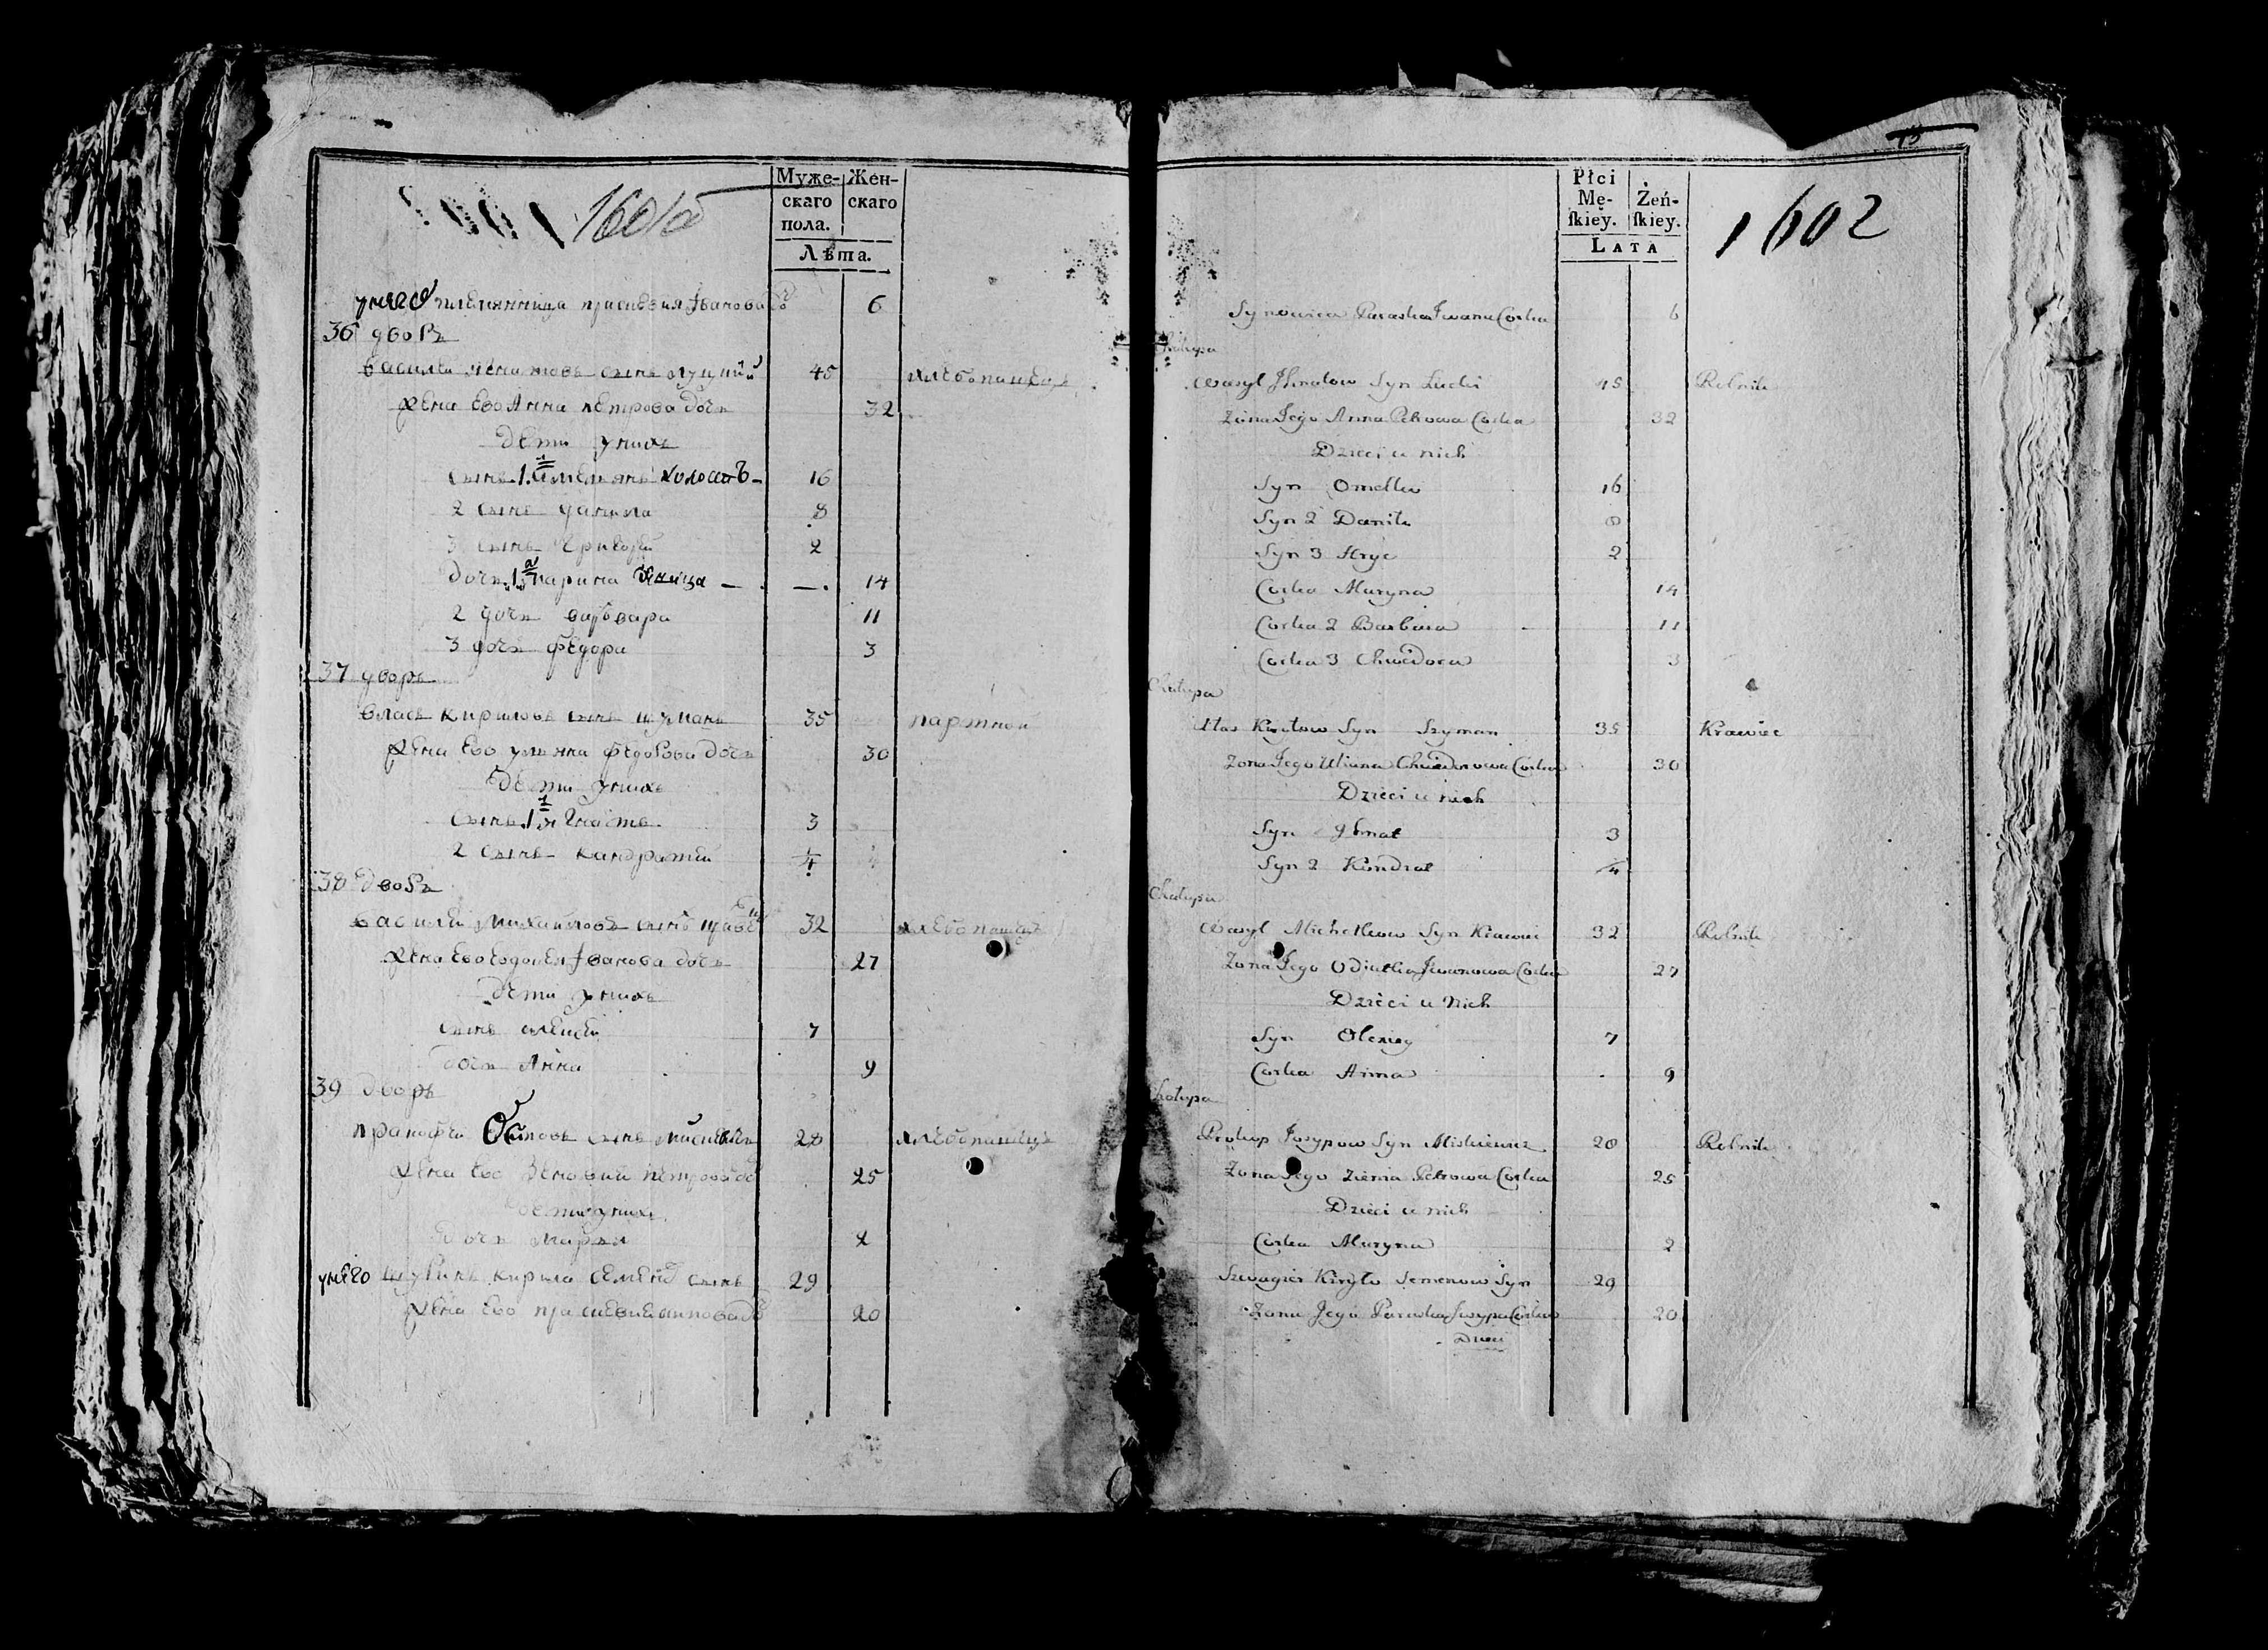 1601 об
Муже-
скаго
пола.
Жен-
скаго
Лѣта.
у него племянница прасковия Іванова до 6
36 дворъ
василий игнатовъ сынъ луцкий 45 хлебопашецъ
жена ево Анна петрова дочь 32
дети у нихъ
сынъ 1й емельянъ холостъ 16
2 сынъ данила 8
3 сынъ григорий 2
дочь 1я марина девица 14
2 дочь варвара 11
3 дочь федора 3
37 дворъ
власъ кириловъ сынъ шуманъ 35 партной
жена ево ульяна федорова дочь 30
дети у нихъ
сынъ 1й игнатъ 3
2 сынъ кандратий 1/4
38 дворъ
василий михайловъ сынъ 32 хлебопашецъ
жена ево евдокея Іванова дочь 27
дети у нихъ
сынъ алексей 7
дочь Анна 9
39 дворъ
пракофий Осиповъ сынъ мискевичъ 28 хлебопашецъ
жена ево зеновия петрова до 25
дети у нихъ
дочь марья 2
у него шуринъ кирила семенов сынъ 29
жена ево прасковия осипова до 20
Płci
Mę-
ſkiey.
Żeń-
ſkiey.
LATA
1602
Synowica Paraska Iwana Corka 6
Chałupa
Wasyl Ihnatow Syn Lucki 45 Rolnik
Zona Jego Anna Petrowa Corka 32
Dzieci u nich
Syn Omelko 16
Syn 2 Daniło 8
Syn 3 Hryc 2
Corka Maryna 14
Corka 2 Barbara 11
Corka 3 Chwedora 3
Chałupa
Ułas Kiryłow Syn Szyman 35 Krawiec
Zona Jego Uliana Chwedorowa Corka 30
Dzieci u nich
Syn Ihnat 3
Syn 2 Kondrat 1/4
Chałupa
Wasyl Michałkow Syn Krawiec 32 Rolnik
Zona Jego Odiutka Iwanowa Corka 27
Dzieci u Nich
Syn Olexiey 7
Corka Anna 9
Chałupa
Prokop Josypow Syn Miskiewicz 28 Rolnik
Zona Jego Zienia Petrowa Corka 25
Dzieci u nich
Corka Maryna 2
Szwagier Kiryło Semenow Syn 29
Zona Jego Paraska Josypa Corka 20
Dzieci